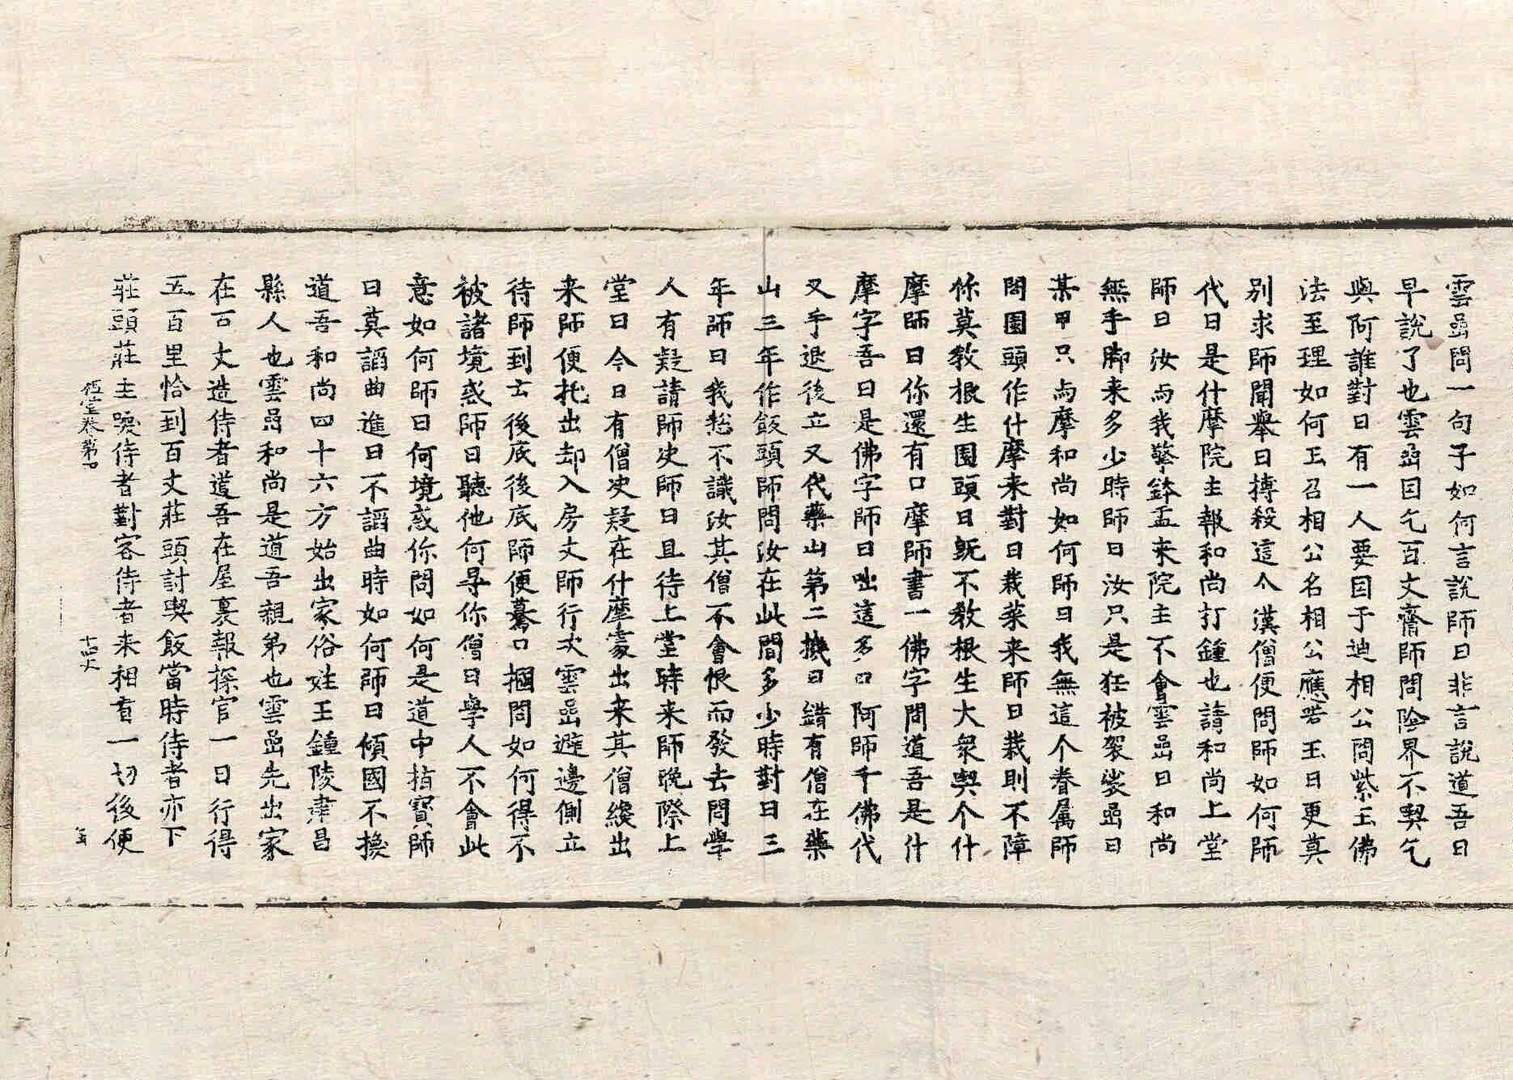 雲嵒問一句子如何言説師曰非言説道吾曰
早説了也雲嵒因乞百丈齋師問陰界不契乞
與阿誰對曰有一人要因于迪相公問紫玉佛
法至理如何玉召相公名相公應若玉曰更莫
別求師聞舉曰搏殺這个漢僧便問師如何師
代曰是什摩院主報和尚打鍾也請和尚上堂
師曰汝与我擎鉢盂来院主不會雲嵒曰和尚
無手脚来多少時師曰汝只是狂被袈裟嵒曰
某甲只与摩和尚如何師曰我無這个眷属師
問園頭作什摩来對曰栽菜来師曰栽則不障
你莫教根生園頭曰既不教根生大衆喫个什
摩師曰你還有口摩師書一佛字問道吾是什
摩字吾曰是佛字師曰咄這多口阿師千佛代
叉手退後立又代藥山第二機曰錯有僧在藥
山三年作飯頭師問汝在此間多少時對曰三
年師曰我惣不識汝其僧不會恨而發去問學
人有疑請師决師曰且待上堂時来師晚際上
堂曰今日有僧决疑在什摩處出来其僧纔出
来師便托出却入房丈師行次雲嵒避邊側立
待師到云後底後底師便驀口摑問如何得不
被諸境惑師曰聽他何㝵你僧曰學人不會此
意如何師曰何境惑你問如何是道中指寶師
曰莫謟曲進曰不謟曲時如何師曰傾國不換
道吾和尚四十六方始出家俗姓王鍾陵建昌
縣人也雲嵒和尚是道吾親弟也雲嵒先出家
在百丈造侍者道吾在屋裏報探官一日行得
五百里恰到百丈莊頭討喫飯當時侍者亦下
莊頭莊主喚侍者對客侍者来相看一切後便
祖堂卷第四
十四丈